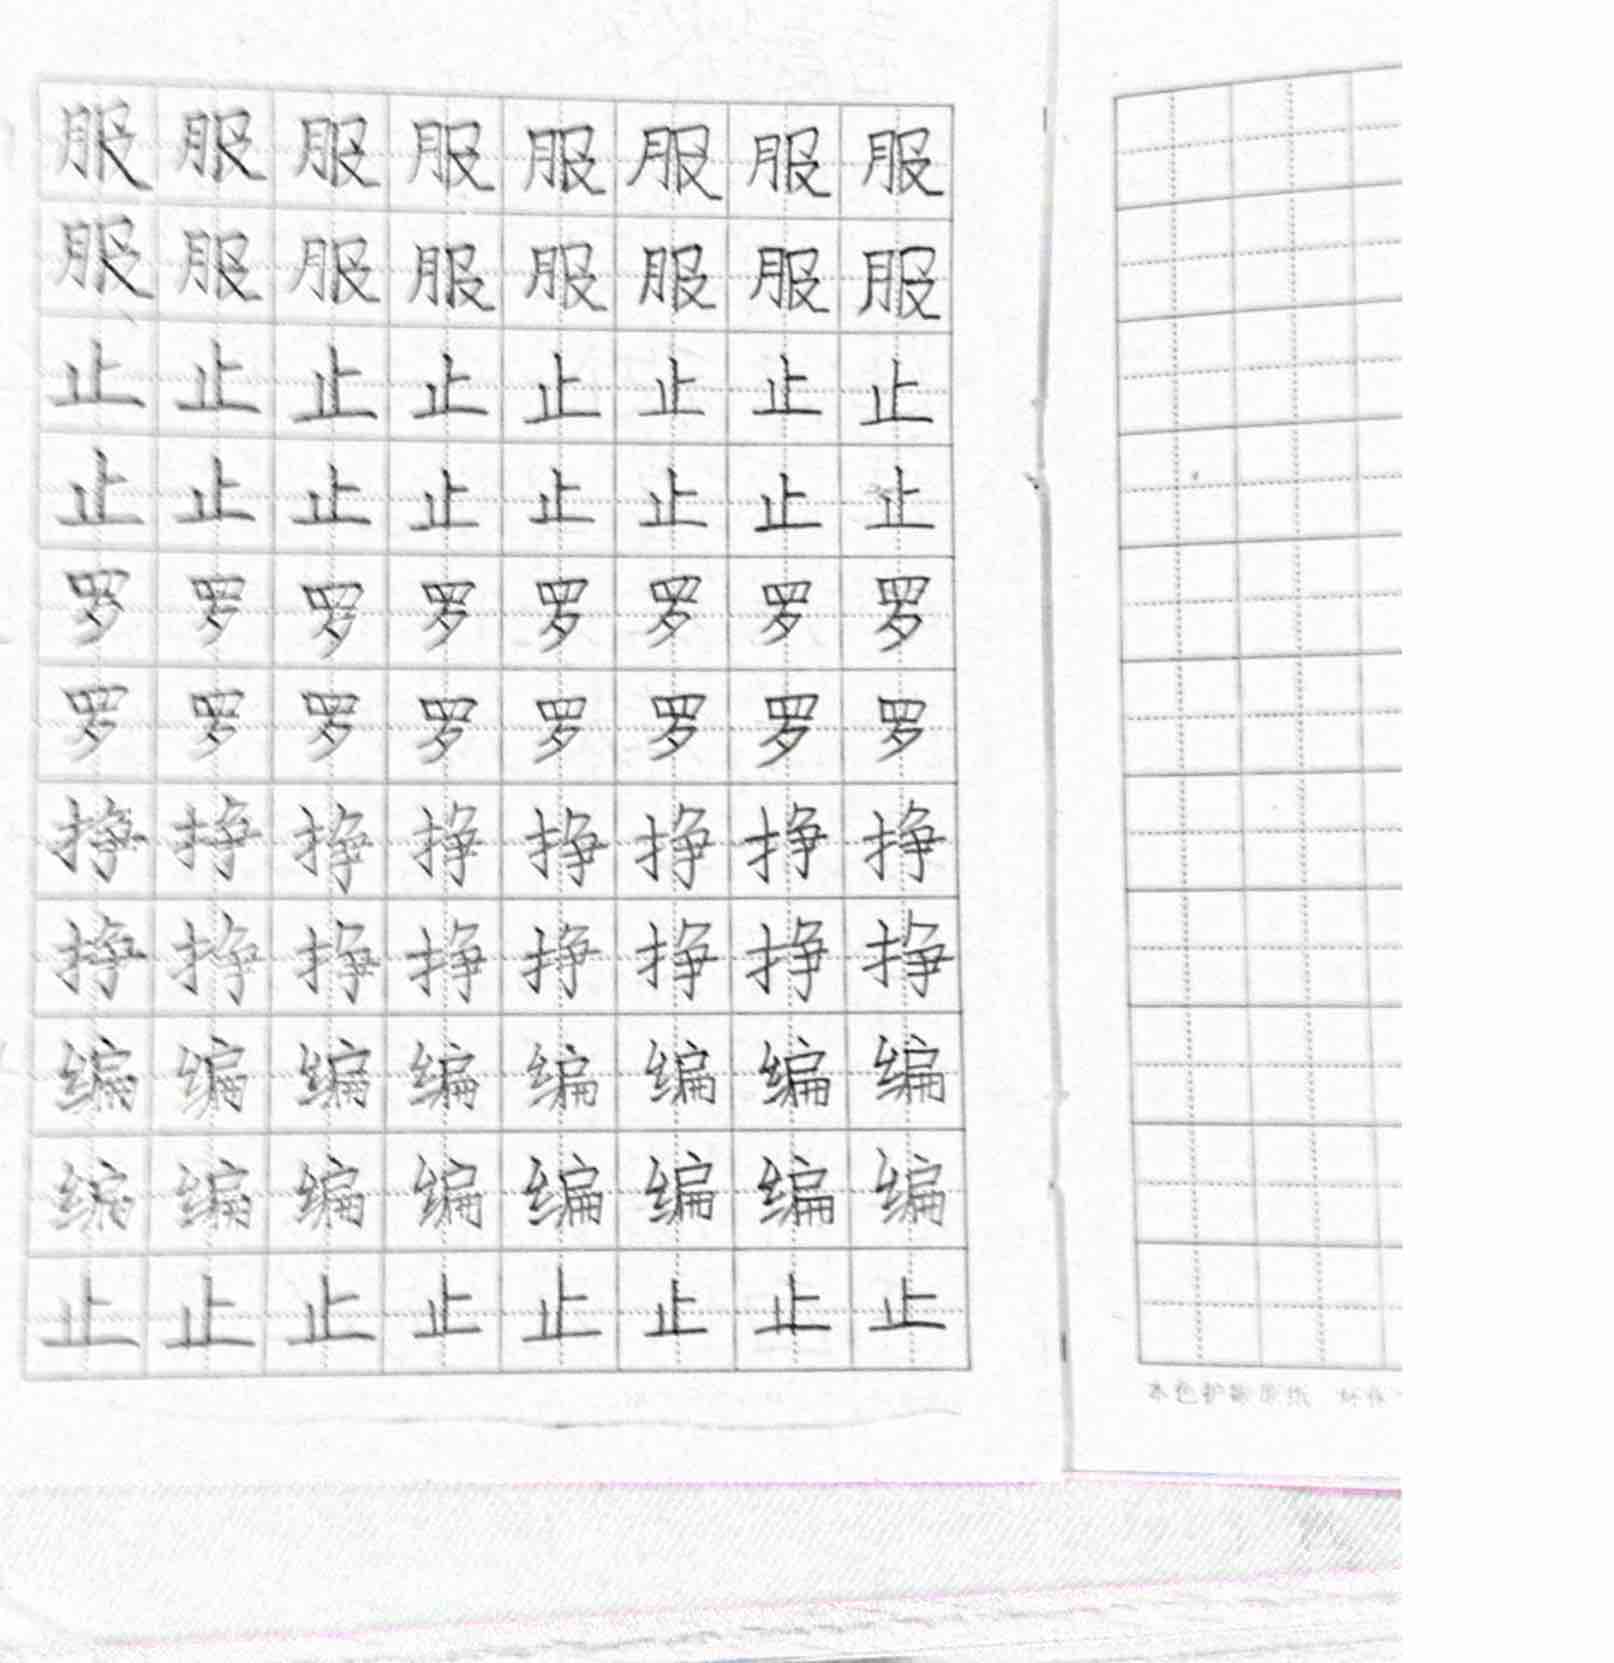 服服服服服服服服
服服服服服服服服
止止止止止止止止
止止止止止止止止
罗罗罗罗罗罗罗罗
罗罗罗罗罗罗罗罗
挣挣挣挣挣挣挣挣
挣挣挣挣挣挣挣挣
编编编编编编编编
编编编编编编编编
止止止止止止止止
本色护眼原纸 环保